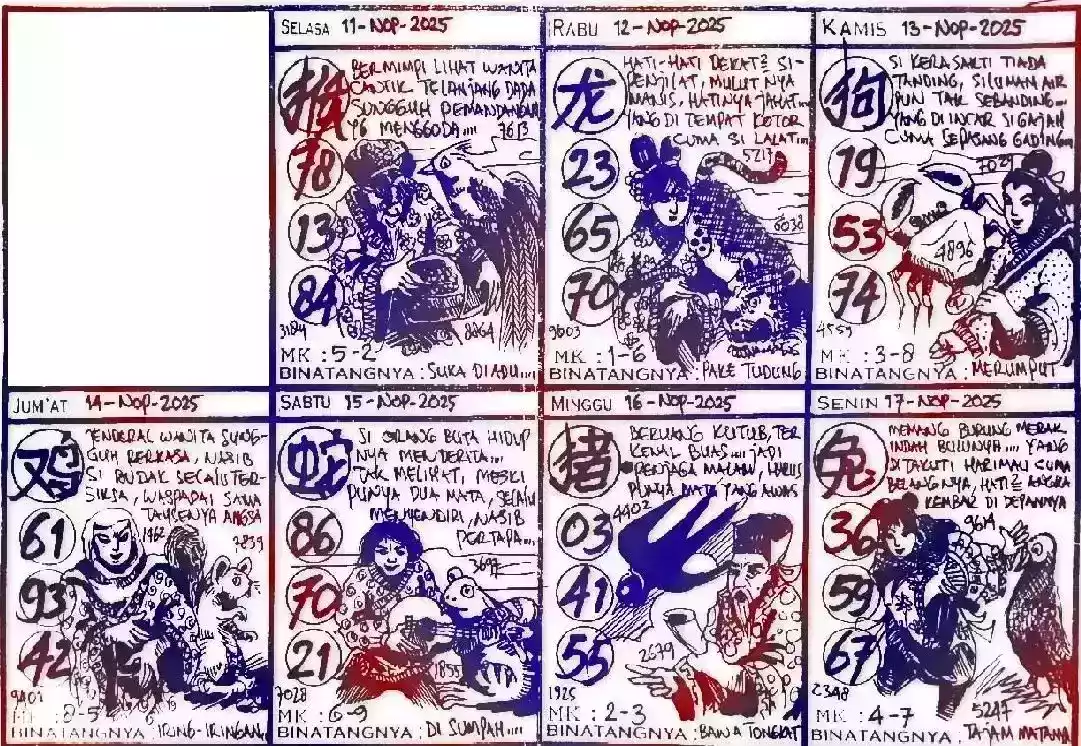 SELASA 11-NOP-2025
猴
BERMIMPI LIHAT WANITA
CANTIK TELANJANG DADA
SUNGGUH PEMANDANGAN
YG MENGGODA....
7613
78
13
84
3184
8864
MK : 5-2
BINATANGNYA : SUKA DIADU....
RABU 12-NOP-2025
龙
HATI-HATI DEKAT² SI-
PENJILAT, MULUTNYA
MANIS, HATINYA JAHAT...
YANG DI TEMPAT KOTOR
CUMA SI LALAT...
5213
23
65
6038
70
9603
MK : 1-6
BINATANGNYA : PAKE TUDUNG
KAMIS 13-NOP-2025
狗
SI KERA SAKTI TIADA
TANDING, SILUMAN AIR
PUN TAK SEBANDING...
YANG DI INCAR SI GAJAH
CUMA SEPASANG GADING...
7029
19
53
4896
74
MK : 3-8
BINATANGNYA : MERUMPUT
JUM'AT 14-NOP-2025
鸡
JENDERAL WANITA SUNG-
GUH PERKASA, NASIB
SI BUDAK SECALU TER-
SIKSA, WASPADAI SAMA
ANGSA
61
1962
7839
93
42
MK : 0-5
BINATANGNYA : IRING-IRINGAN
SABTU 15-NOP-2025
蛇
SI ORANG BUTA HIDUP
NYA MENDERITA...
TAK MELIHAT, MESKI
PUNYA DUA MATA, SELALU
MENYENDIRI, NASIB
PERTAPA...
86
3697
70
21
1855
7028
MK : 6-9
BINATANGNYA : DI SUMPAH....
MINGGU 16-NOP-2025
猪
BERUANG KUTUB, TER
KENAL BUAS.... JADI
PENJAGA MALAM, HARUS
PUNYA MATA YANG AWAS
4402
03
41
2679
55
1925
MK : 2-3
BINATANGNYA : BAWA TONGKAT
SENIN 17-NOP-2025
兔
MEMANG BURUNG MERAK
INDAH BULUNYA.... YANG
DITAKUTI HARIMAU CUMA
BELANGNYA, HATI² ANGKA
KEMBAR DI DEPANNYA
36
9614
59
67
2348
5247
MK : 4-7
BINATANGNYA : TAJAM MATANYA